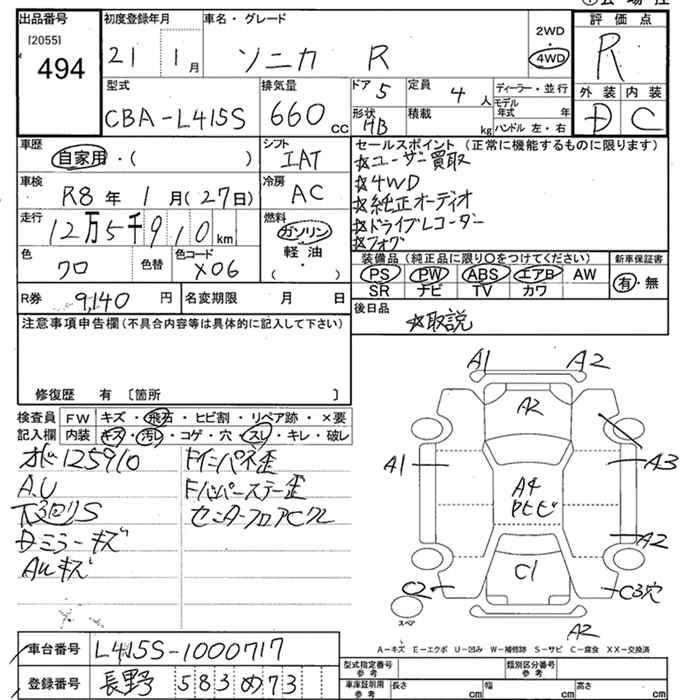 出品番号 初度登録年月 車名・グレード 2WD 評価点
[2055] 494 21 1月 ソニカ R 4WD R
型式 排気量 ドア 5 定員 4人 ディーラー・並行 外装 内装
CBA-L415S 660cc 形状 HB 積載 kg モデル年式 年 ハンドル 左・右 D C
車歴 シフト セールスポイント (正常に機能するものに限ります)
自家用・( ) IAT ☆ユーザー買取
車検 冷房 ☆4WD
R8年 1月(27日) AC ☆純正オーディオ
走行 燃料 ☆ドライブレコーダー
12万5千910km ガソリン ☆フォグ
色 色替 色コード 軽油
クロ X06 (・)
装備品(純正品に限り○をつけてください) 新車保証書
PS PW ABS エアB AW 有・無
SR ナビ TV カワ
R券 9,140円 名変期限 月 日
後日品 ☆取説
注意事項申告欄(不具合内容等は具体的に記入して下さい)
修復歴 有 〔箇所 〕
検査員 FW キズ・飛石・ヒビ割・リペア跡・×要
記入欄 内装 キズ・汚レ・コゲ・穴・スレ・キレ・破レ
125910
A.U
S
Dミラーキズ
Auキズ
Fインパネ歪
Fバンパーステー歪
センターフロアCクレ
A1 A2
A2
A1 A3
A4
A2
C1
C2 C3穴
スペア
A2
A-キズ E-エクボ U-凹み W-補修跡 S-サビ C-腐食 XX-交換済
車台番号 L415S-1000717
登録番号 長野 583 め 73
型式指定番号 参考 類別区分番号 参考
車庫証明用 参考 長さ cm 幅 cm 高さ cm